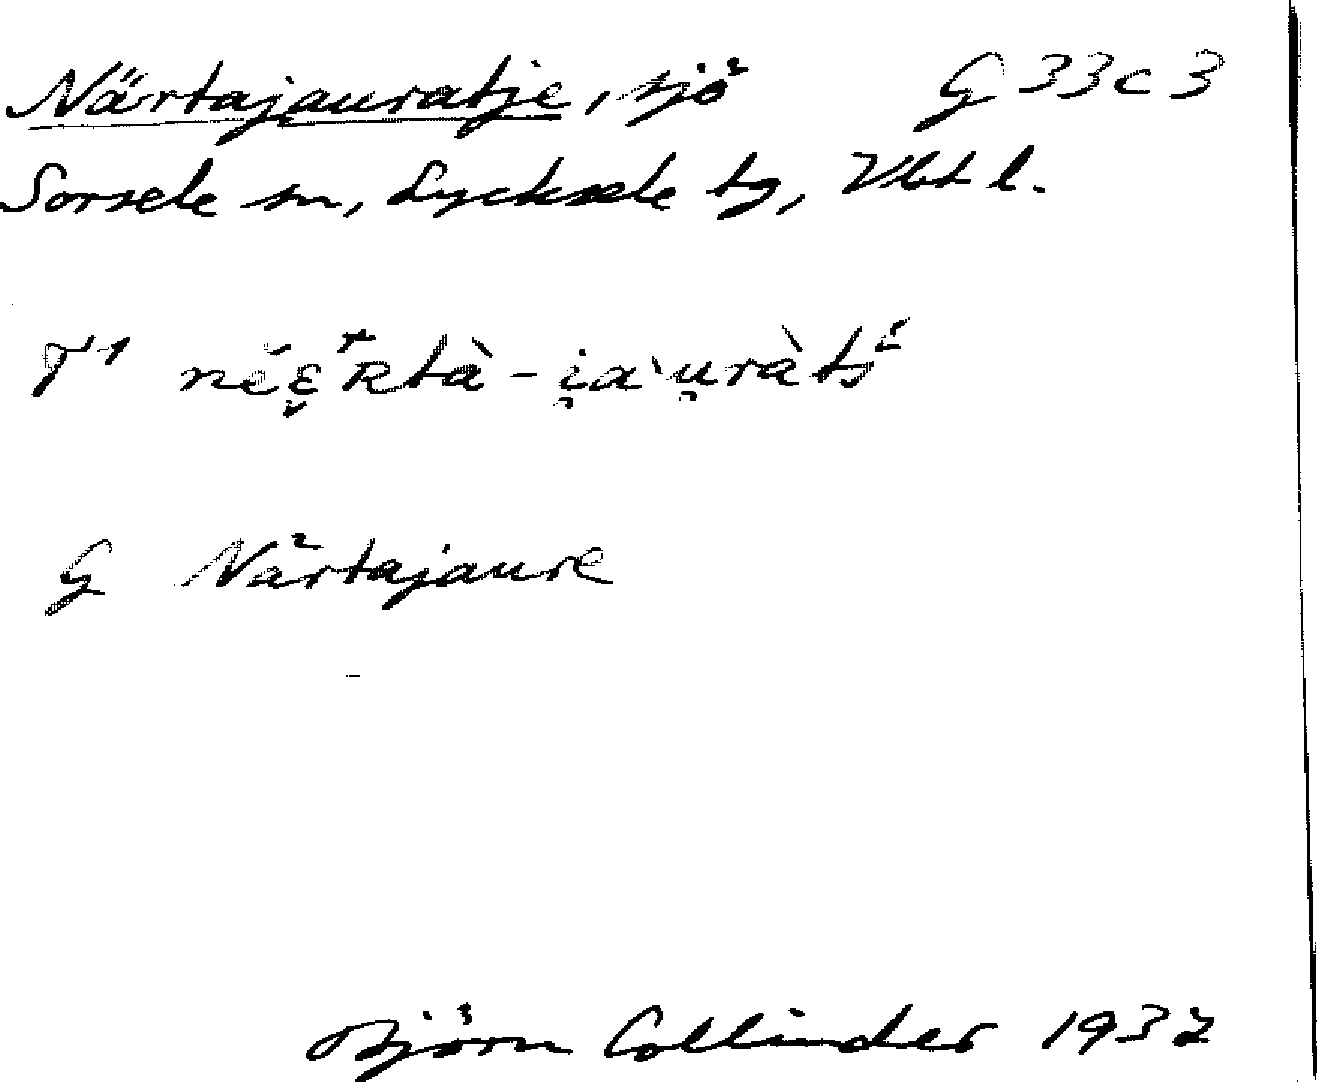 Närtajauratje, sjö G 33 c 3
Sorsele sn, Lycksele tg, Vbt l.
T1 nĕɛ̯ʀtà - i̯a`u̯ràtś
G Närtajaure
Björn Collinder 1937